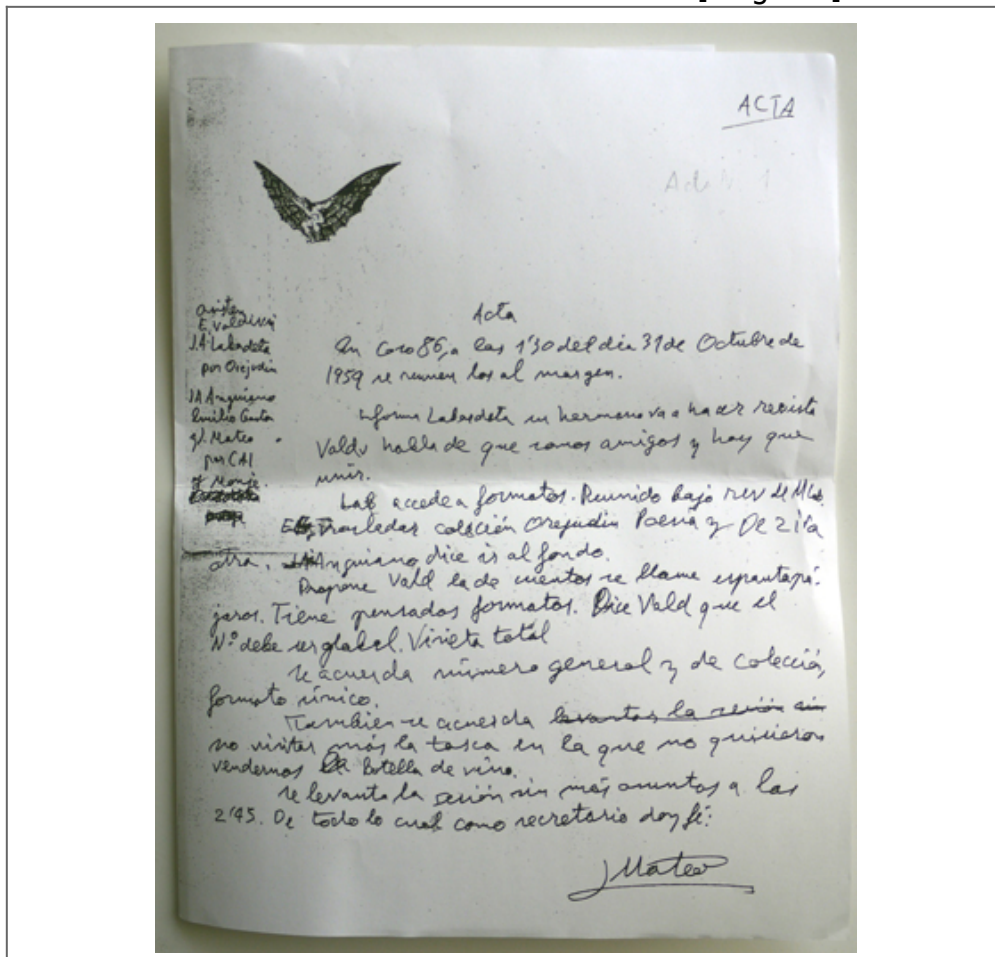 ACTA
Acta
asisten
E. Valdivia
J.A Labordeta
por Orejudín
J.A Anguiano
Emilio Gastón
J. Mateo
por CAI
y Monje.
En Coso 86, a las 1'30 del día 31 de Octubre de
1959 se reunen los al margen.
Informa Labordeta su hermano va a hacer revista
Valdv habla de que somos amigos y hay que
unir.
Lab accede a formatos. Reunido bajo rev de
Trasladar colección Orejudin Poesia y De
otra. Anguiano dice ir al fondo.
Propone Vald la de cuentos se llame espantapá-
jaros. Tiene pensados formatos. Dice Vald que el
Nº debe ser global. Viñeta total
se acuerda número general y de colección,
formato único.
También se acuerda levantar la sesión sin
no visitar más la tasca en la que no quisieron
vendernos la botella de vino.
se levanta la sesión sin más asuntos a las
2'45. De todo lo cual como secretario doy fé:
JMateo